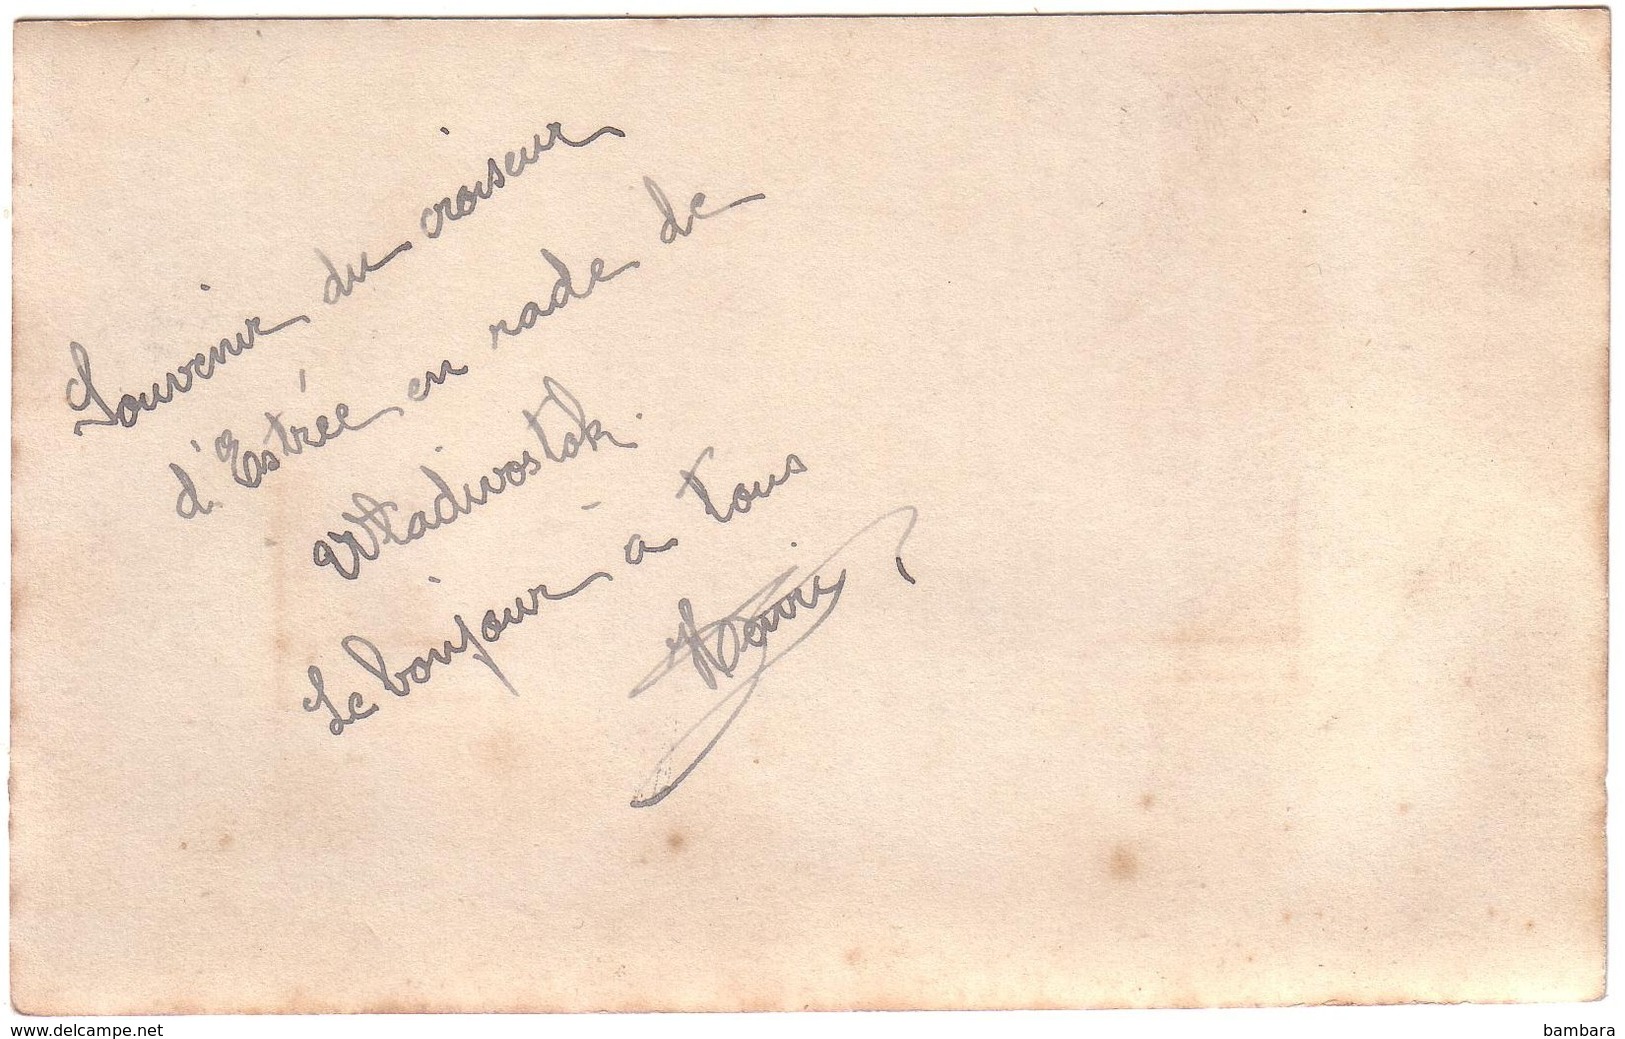 Souvenir du croiseur
d'Estrée en rade de
Vladivostok.
Le bonjour à tous
Henri
www.delcampe.net
bambara